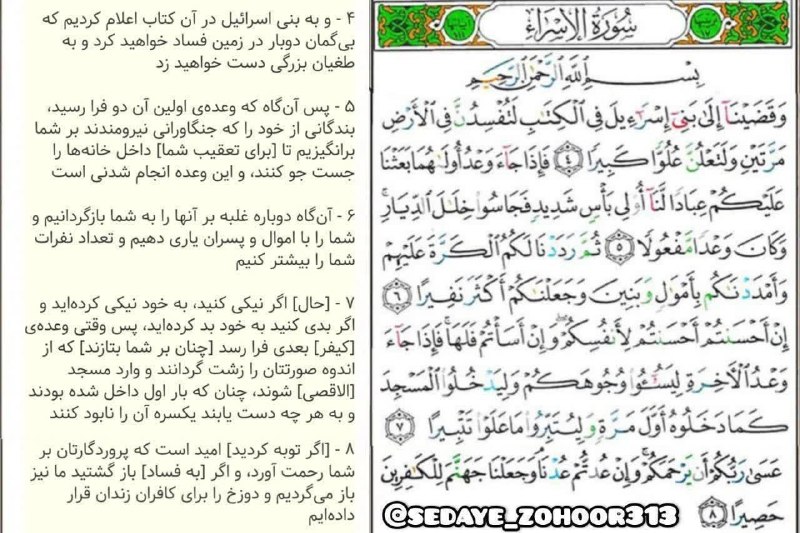 سُورَةُ الإِسْرَاءِ
بِسْمِ اللَّهِ الرَّحْمَٰنِ الرَّحِيمِ
وَقَضَيْنَآ إِلَىٰ بَنِىٓ إِسْرَٰٓءِيلَ فِى ٱلْكِتَٰبِ لَتُفْسِدُنَّ فِى ٱلْأَرْضِ
مَرَّتَيْنِ وَلَتَعْلُنَّ عُلُوًّا كَبِيرًا ٤ فَإِذَا جَآءَ وَعْدُ أُولَىٰهُمَا بَعَثْنَا
عَلَيْكُمْ عِبَادًا لَّنَآ أُو۟لِى بَأْسٍ شَدِيدٍ فَجَاسُوا۟ خِلَٰلَ ٱلدِّيَارِ ۚ
وَكَانَ وَعْدًا مَّفْعُولًا ٥ ثُمَّ رَدَدْنَا لَكُمُ ٱلْكَرَّةَ عَلَيْهِمْ
وَأَمْدَدْنَٰكُم بِأَمْوَٰلٍ وَبَنِينَ وَجَعَلْنَٰكُمْ أَكْثَرَ نَفِيرًا ٦
إِنْ أَحْسَنتُمْ أَحْسَنتُمْ لِأَنفُسِكُمْ ۖ وَإِنْ أَسَأْتُمْ فَلَهَا ۚ فَإِذَا جَآءَ
وَعْدُ ٱلْءَاخِرَةِ لِيَسُۥٓـُٔوا۟ وُجُوهَكُمْ وَلِيَدْخُلُوا۟ ٱلْمَسْجِدَ
كَمَا دَخَلُوهُ أَوَّلَ مَرَّةٍ وَلِيُتَبِّرُوا۟ مَا عَلَوْا۟ تَتْبِيرًا ٧
عَسَىٰ رَبُّكُمْ أَن يَرْحَمَكُمْ ۚ وَإِنْ عُدتُّمْ عُدْنَا ۘ وَجَعَلْنَا جَهَنَّمَ لِلْكَٰفِرِينَ
حَصِيرًا ٨
@SEDAYE_ZOHOOR313
۴ - و به بنی اسرائیل در آن کتاب اعلام کردیم که
بی‌گمان دوبار در زمین فساد خواهید کرد و به
طغیان بزرگی دست خواهید زد
۵ - پس آن‌گاه که وعده‌ی اولین آن دو فرا رسید،
بندگانی از خود را که جنگاورانی نیرومندند بر شما
برانگیزیم تا [برای تعقیب شما] داخل خانه‌ها را
جست جو کنند، و این وعده انجام شدنی است
۶ - آن‌گاه دوباره غلبه بر آنها را به شما بازگردانیم و
شما را با اموال و پسران یاری دهیم و تعداد نفرات
شما را بیشتر کنیم
۷ - [حال] اگر نیکی کنید، به خود نیکی کرده‌اید و
اگر بدی کنید به خود بد کرده‌اید، پس وقتی وعده‌ی
[کیفر] بعدی فرا رسد [چنان بر شما بتازند] که از
اندوه صورتتان را زشت گردانند و وارد مسجد
[الاقصی] شوند، چنان که بار اول داخل شده بودند
و به هر چه دست یابند یکسره آن را نابود کنند
۸ - [اگر توبه کردید] امید است که پروردگارتان بر
شما رحمت آورد، و اگر [به فساد] باز گشتید ما نیز
باز می‌گردیم و دوزخ را برای کافران زندان قرار
داده‌ایم